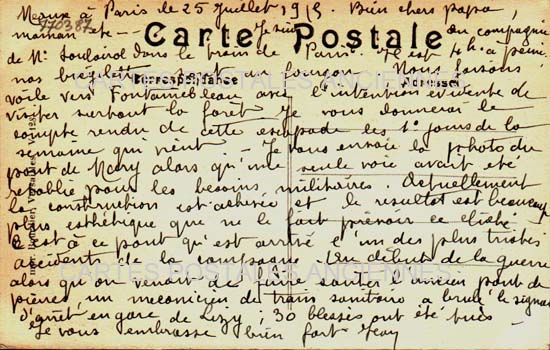 Meaux à Paris le 25 juillet 1915. Bien chers papa,
maman etc — Je suis en compagnie
Carte Postale
de Mr dans le train de Paris. Il est 4h à peine
nos sont Nous faisons
Correspondance
Adresse
voile vers Fontainebleau avec l'intention évidente de
visiter surtout la forêt Je vous donnerai le
compte rendu de cette escapade les 1ers jours de la
semaine qui vient — Je vous envoie la photo du
pont de Mary alors qu'une seule voie avait été
rétablie pour les besoins militaires Actuellement
la construction est achevée et le résultat est beaucoup
plus esthétique que ne le fait prévoir ce cliché.
C'est à ce pont qu'est arrivé l'un des plus tristes
accidents de la campagne. Au début de la guerre
CARTES POSTALES ANCIENNES
alors qu'on venait de faire sauter l'ancien pont de
pierres, un mécanicien de train sanitaire a brûlé le signal
d'arrêt en gare de Lizy ; 30 blessés ont été tués —
Je vous embrasse bien fort Jean